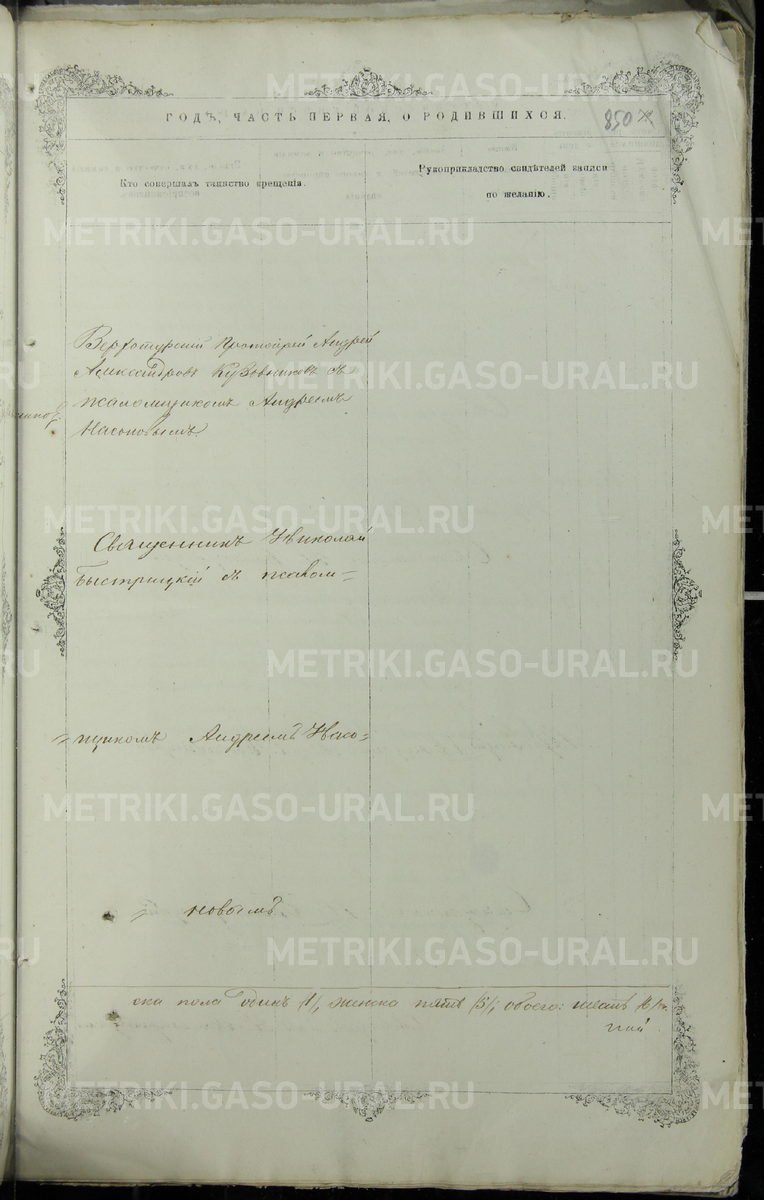 ГОДЪ, ЧАСТЬ ПЕРВАЯ, О РОДИВШИХСЯ.
850
Кто совершалъ таинство крещенія.
Рукоприкладство свидѣтелей записи
по желанію.
Верхотурскій Протоіерей Андрей
Александровъ Кузовниковъ съ
псаломщикомъ Андреемъ
Насоновымъ
Священникъ Николай
Быстрицкій съ псалом=
=щикомъ Андреемъ Насо=
= новымъ
ска пола одинъ /1/, женска пять /5/; обоего: шесть /6/
METRIKI.GASO-URAL.RU